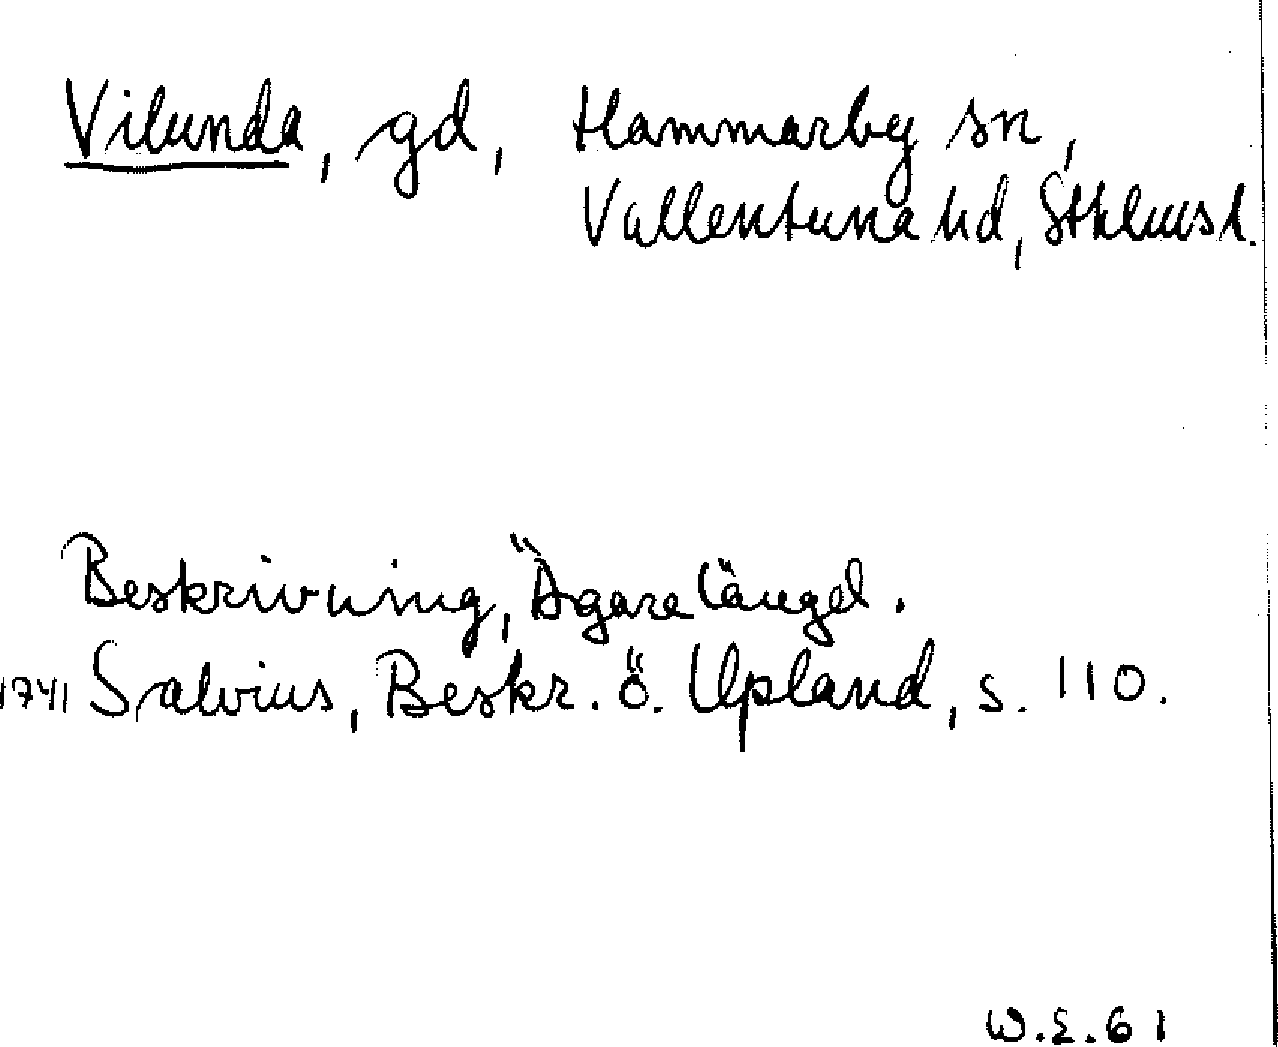 Vilunda, gd, Hammarby sn,
Vallentuna hd, Sthlms l.
Beskrivning, Ägarelängd.
1741 Salvius, Beskr. ö. Upland, s. 110.
W.E.61